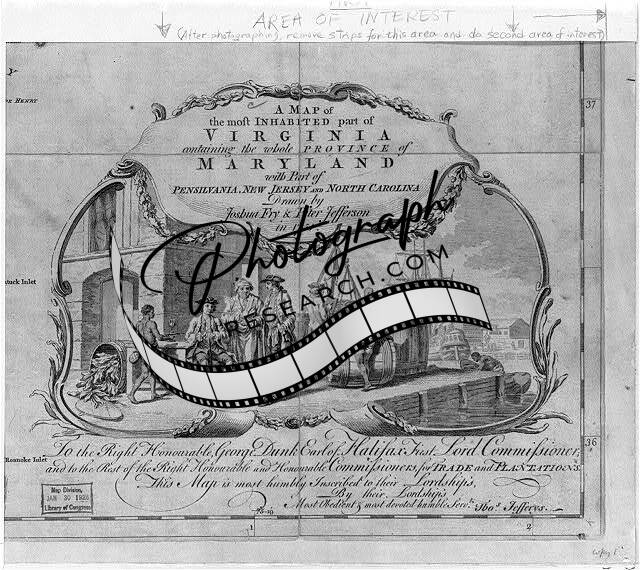 AREA OF INTEREST
(After photographing, remove strips for this area and do second area of interest)
37
A MAP of
the most INHABITED part of
VIRGINIA
containing the whole PROVINCE of
MARYLAND
with Part of
PENSILVANIA, NEW JERSEY AND NORTH CAROLINA
Drawn by
Joshua Fry & Peter Jefferson
in
Photograph
RESEARCH.COM
Inlet
36
Roanoke Inlet
To the Right Honourable, George Dunk Earl of Halifax First Lord Commissioner,
and to the Rest of the Right Honourable and Honourable Commissioners, for TRADE and PLANTATIONS.
This Map is most humbly Inscribed to their Lordship's,
By their Lordship's
Most Obedient & most devoted humble Servt. Thos. Jefferys.
Map Division,
JAN 30 1928
Library of Congress
1
2